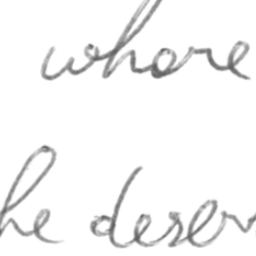 whore
he deser